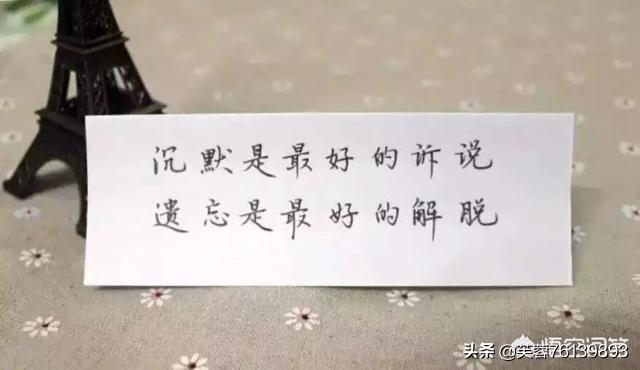 沉默是最好的诉说
遗忘是最好的解脱
悟空问答
头条 @芙蓉76139893